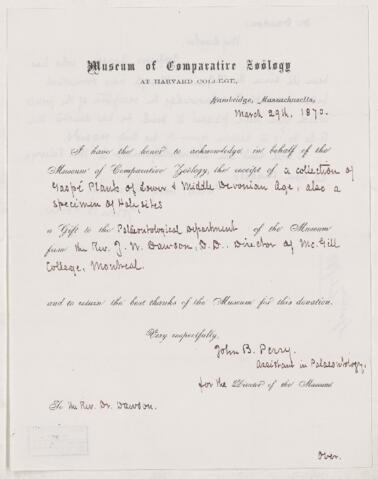 Museum of Comparative Zoölogy
AT HARVARD COLLEGE,
Cambridge, Massachusetts,
March 29th, 1870.
I have the honor to acknowledge in behalf of the
Museum of Comparative Zoölogy, the receipt of a collection of
Gaspé Plants of Lower & Middle Devonian Age, also a
specimen of
a Gift to the Palaeontological Department of the Museum
from the Rev. J. W. Dawson, D. D., Director of McGill
College, Montreal.
and to return the best thanks of the Museum for this donation.
Very respectfully,
John B. Perry.
Assistant in Palaeontology,
for the Director of the Museum
To the Rev. Dr. Dawson.
Over.